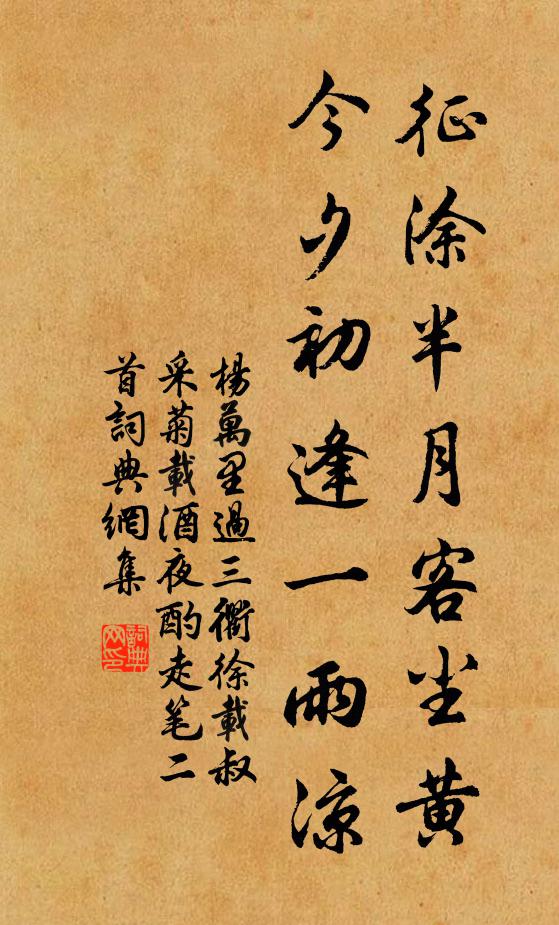 征涂半月客尘黄
今夕初逢一雨涼
楊萬里過三衢徐載叔
采菊載酒夜酌走笔二
首詞典網集
詞典
网印